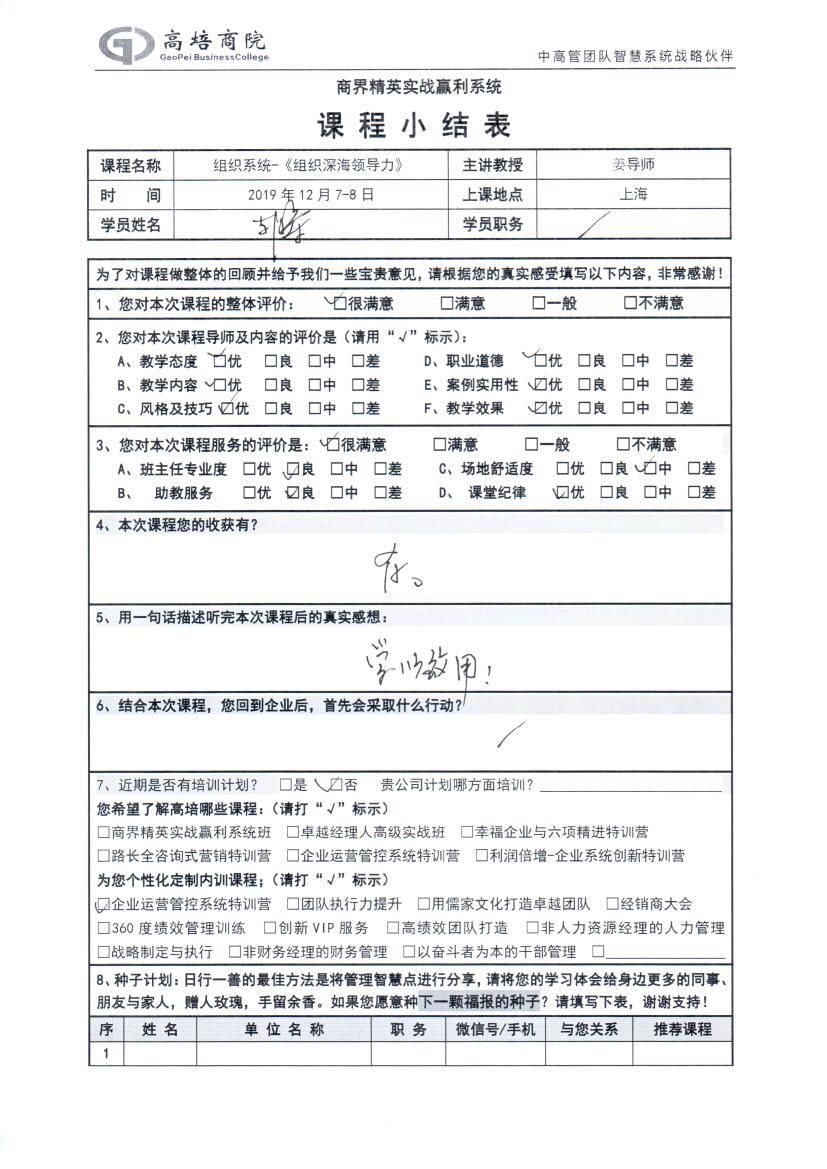 高培商院
GaoPei BusinessCollege
中高管团队智慧系统战略伙伴
商界精英实战赢利系统
课程小结表
课程名称 组织系统-《组织深海领导力》 主讲教授 姜导师
时 间 2019年12月7-8日 上课地点 上海
学员姓名 学员职务
为了对课程做整体的回顾并给予我们一些宝贵意见，请根据您的真实感受填写以下内容，非常感谢！
1、您对本次课程的整体评价： ☑很满意 □满意 □一般 □不满意
2、您对本次课程导师及内容的评价是（请用“√”标示）：
A、教学态度 ☑优 □良 □中 □差 D、职业道德 ☑优 □良 □中 □差
B、教学内容 ☑优 □良 □中 □差 E、案例实用性 ☑优 □良 □中 □差
C、风格及技巧 ☑优 □良 □中 □差 F、教学效果 ☑优 □良 □中 □差
3、您对本次课程服务的评价是：☑很满意 □满意 □一般 □不满意
A、班主任专业度 □优 ☑良 □中 □差 C、场地舒适度 □优 □良 ☑中 □差
B、 助教服务 □优 ☑良 □中 □差 D、 课堂纪律 ☑优 □良 □中 □差
4、本次课程您的收获有？
有。
5、用一句话描述听完本次课程后的真实感想：
学以致用！
6、结合本次课程，您回到企业后，首先会采取什么行动？
7、近期是否有培训计划？ □是 ☑否 贵公司计划哪方面培训？
您希望了解高培哪些课程：（请打“√”标示）
□商界精英实战赢利系统班 □卓越经理人高级实战班 □幸福企业与六项精进特训营
□路长全咨询式营销特训营 □企业运营管控系统特训营 □利润倍增-企业系统创新特训营
为您个性化定制内训课程；（请打“√”标示）
☑企业运营管控系统特训营 □团队执行力提升 □用儒家文化打造卓越团队 □经销商大会
□360度绩效管理训练 □创新VIP服务 □高绩效团队打造 □非人力资源经理的人力管理
□战略制定与执行 □非财务经理的财务管理 □以奋斗者为本的干部管理 □
8、种子计划：日行一善的最佳方法是将管理智慧点进行分享，请将您的学习体会给身边更多的同事、
朋友与家人，赠人玫瑰，手留余香。如果您愿意种下一颗福报的种子？请填写下表，谢谢支持！
序 姓名 单位名称 职务 微信号/手机 与您关系 推荐课程
1